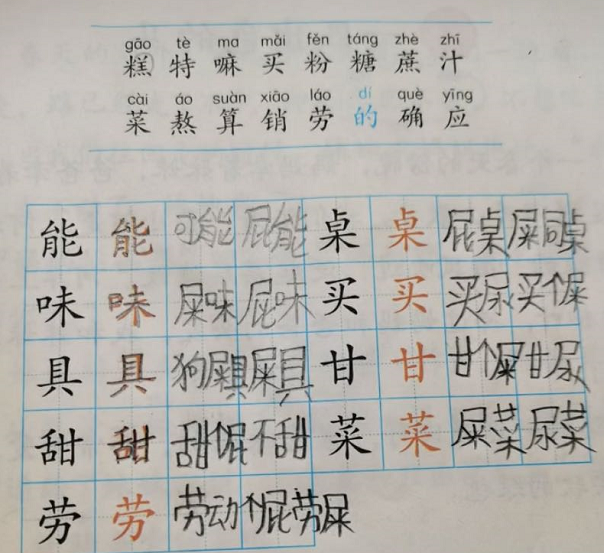 gāo tè ma mǎi fěn táng zhè zhī
糕 特 嘛 买 粉 糖 蔗 汁
cài áo suàn xiāo láo dí què yīng
菜 熬 算 销 劳 的 确 应
能 能 可能 屁能 桌 桌 屁桌 屎同桌
味 味 屎味 屁味 买 买 买尿 买个屎
具 具 狗屎具 屎具 甘 甘 甘个屎 甘尿
甜 甜 甜个屁 不甜 菜 菜 屎菜 尿菜
劳 劳 劳动个屁 劳屎